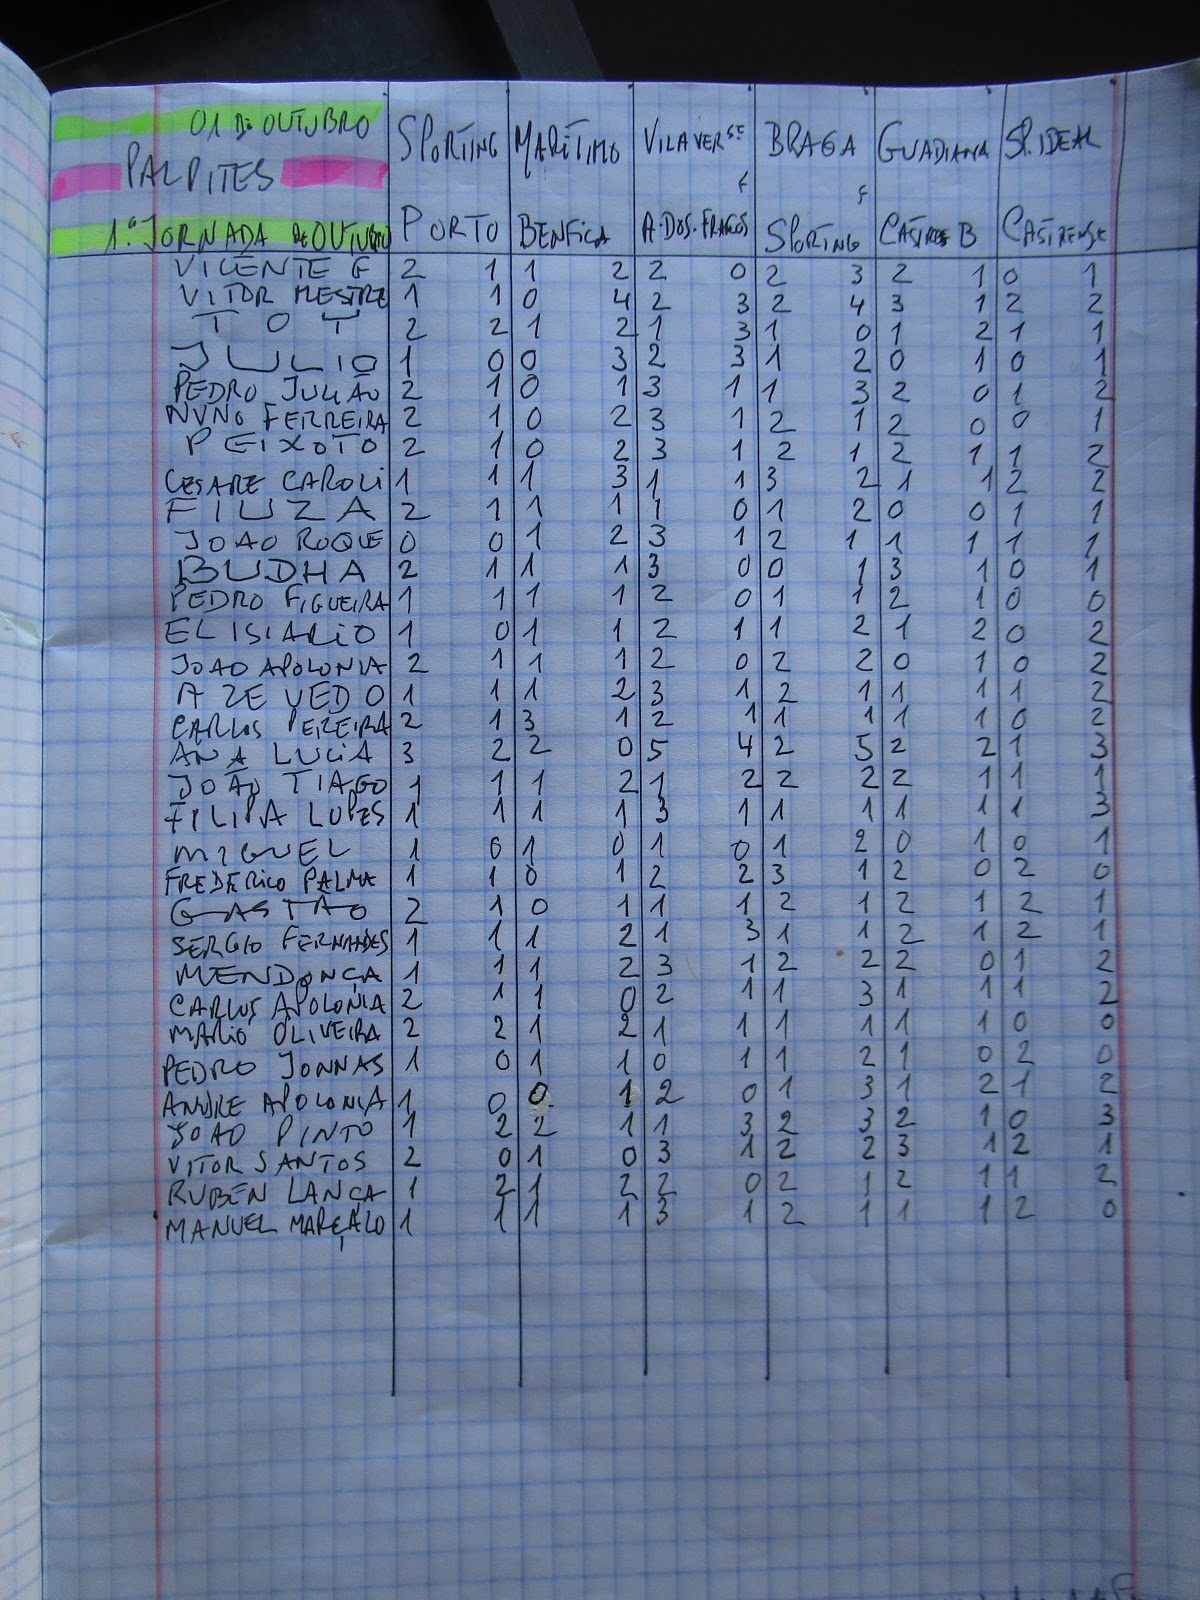 01 DE OUTUBRO SPORTING MARÍTIMO VILAVERSE BRAGA GUADIANA SP. IDEAL
PALPITES F F
1.ª JORNADA DE OUTUBRO PORTO BENFICA A-DOS-FRANCOS SPORTING CASTRENSE B CASTRENSE
VICENTE G 2 1 1 2 2 0 2 3 2 1 0 1
VITOR MESTRE 1 1 0 4 2 3 2 4 3 1 2 2
TOT 2 2 1 2 1 3 1 0 1 2 1 1
JULIO 1 0 0 3 2 3 1 2 0 1 0 1
PEDRO JULIÃO 2 1 0 1 3 1 1 3 2 0 1 2
NUNO FERREIRA 2 1 0 2 3 1 2 1 2 0 0 1
PEIXOTO 2 1 0 2 3 1 2 1 2 1 1 2
CESARE CAROLI 1 1 1 3 1 1 3 2 1 1 2 2
FIUZA 2 1 1 1 1 0 1 2 0 0 1 1
JOAO ROQUE 0 0 1 2 3 1 2 1 1 1 1 1
BUDHA 2 1 1 1 3 0 0 1 3 1 0 1
PEDRO FIGUEIRA 1 1 1 1 2 0 1 1 2 1 0 0
ELISIARIO 1 0 1 1 2 1 1 2 1 2 0 2
JOAO APOLONIA 2 1 1 1 2 0 2 2 0 1 0 2
AZEVEDO 1 1 1 2 3 1 2 1 1 1 1 2
CARLOS PEREIRA 2 1 3 1 2 1 1 1 1 1 0 2
ANA LUCIA 3 2 2 0 5 4 2 5 2 2 1 3
JOÃO TIAGO 1 1 1 2 1 2 2 2 2 1 1 1
FILIPA LOPES 1 1 1 1 3 1 1 1 1 1 1 3
MIGUEL 1 0 1 0 1 0 1 2 0 1 0 1
FREDERICO PALMA 1 1 0 1 2 2 3 1 2 0 2 0
GASTÃO 2 1 0 1 1 1 2 1 2 1 2 1
SERGIO FERNANDES 1 1 1 2 1 3 1 1 2 1 2 1
MENDONÇA 1 1 1 2 3 1 2 2 2 0 1 2
CARLOS APOLONIA 2 1 1 0 2 1 1 3 1 1 1 2
MARIO OLIVEIRA 2 2 1 2 1 1 1 1 1 1 0 0
PEDRO JONNAS 1 0 1 1 0 1 1 2 1 0 2 0
ANDRE APOLONIA 1 0 0 1 2 0 1 3 1 2 1 2
JOAO PINTO 1 2 2 1 1 3 2 3 2 1 0 3
VITOR SANTOS 2 0 1 0 3 1 2 2 3 1 2 1
RUBEN LANÇA 1 2 1 2 2 0 2 1 2 1 1 2
MANUEL MARÇALO 1 1 1 1 3 1 2 1 1 1 2 0